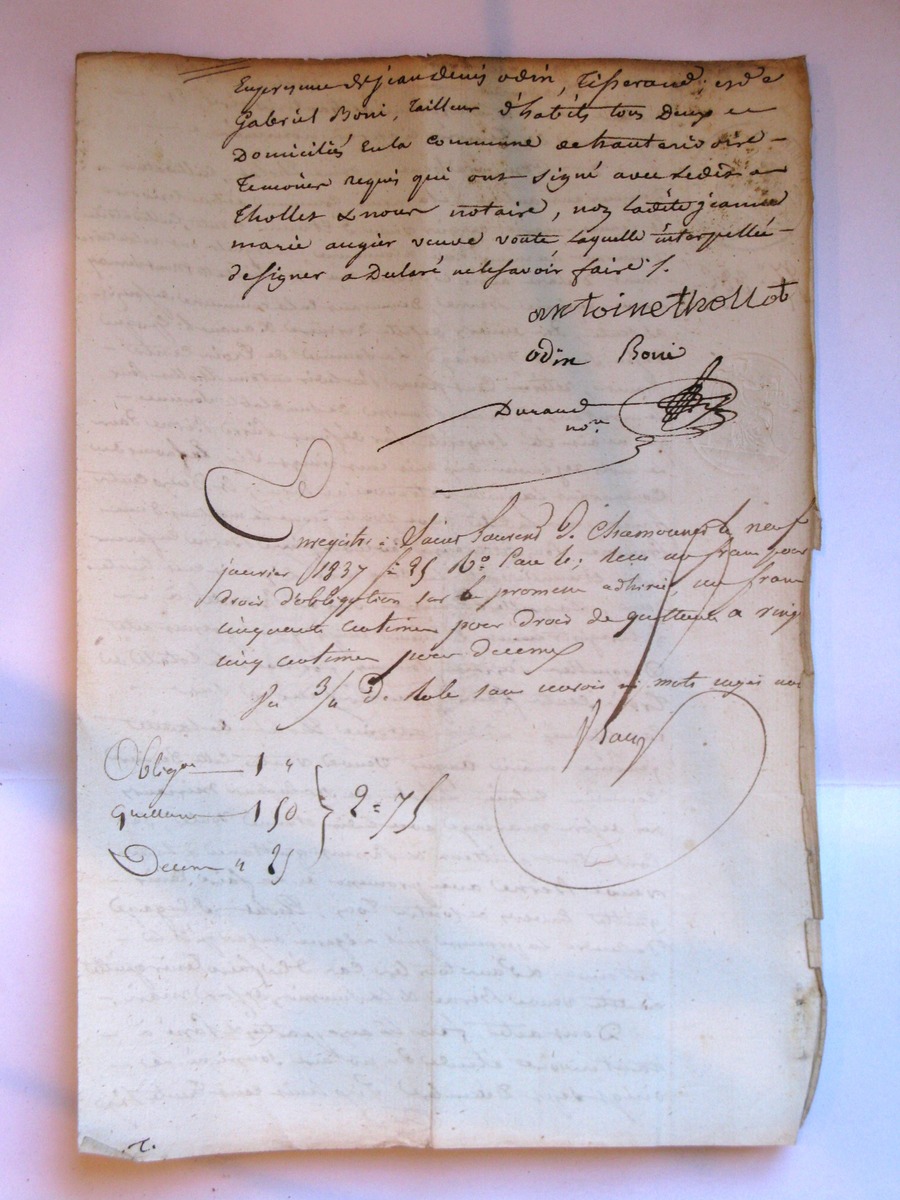 En presence de jean denis odin, Tisserand, et de
Gabriel Boni, tailleur d'habits tous Deux
Domiciliés En la commune de hauterivoire
Temoins requis qui ont signé avec ledit
thollet & nous notaire, non ladite jeanne
marie augier veuve voute laquelle interpellée
de signer a Declaré ne le savoir faire /.
antoine thollot
odin Boni
Durand
nore
Enregistré à Saint Laurent D. Chamousset le neuf
janvier 1837 f° 25 Vo Case 6; Recu un franc pour
droit d'obligation sur la promesse un franc
cinquante centimes pour droit de quittance & vingt
cinq centimes pour decime
3/4 D. sans mots rayés
Obligon 1 "
quittance 1 50
Decime " 25
2 = 75